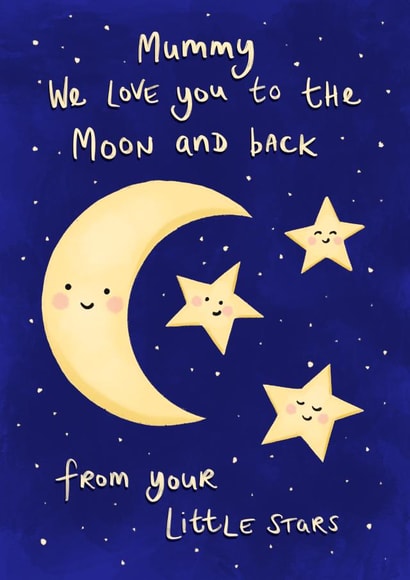 Mummy
We Love you to the
Moon and back
from your
Little stars